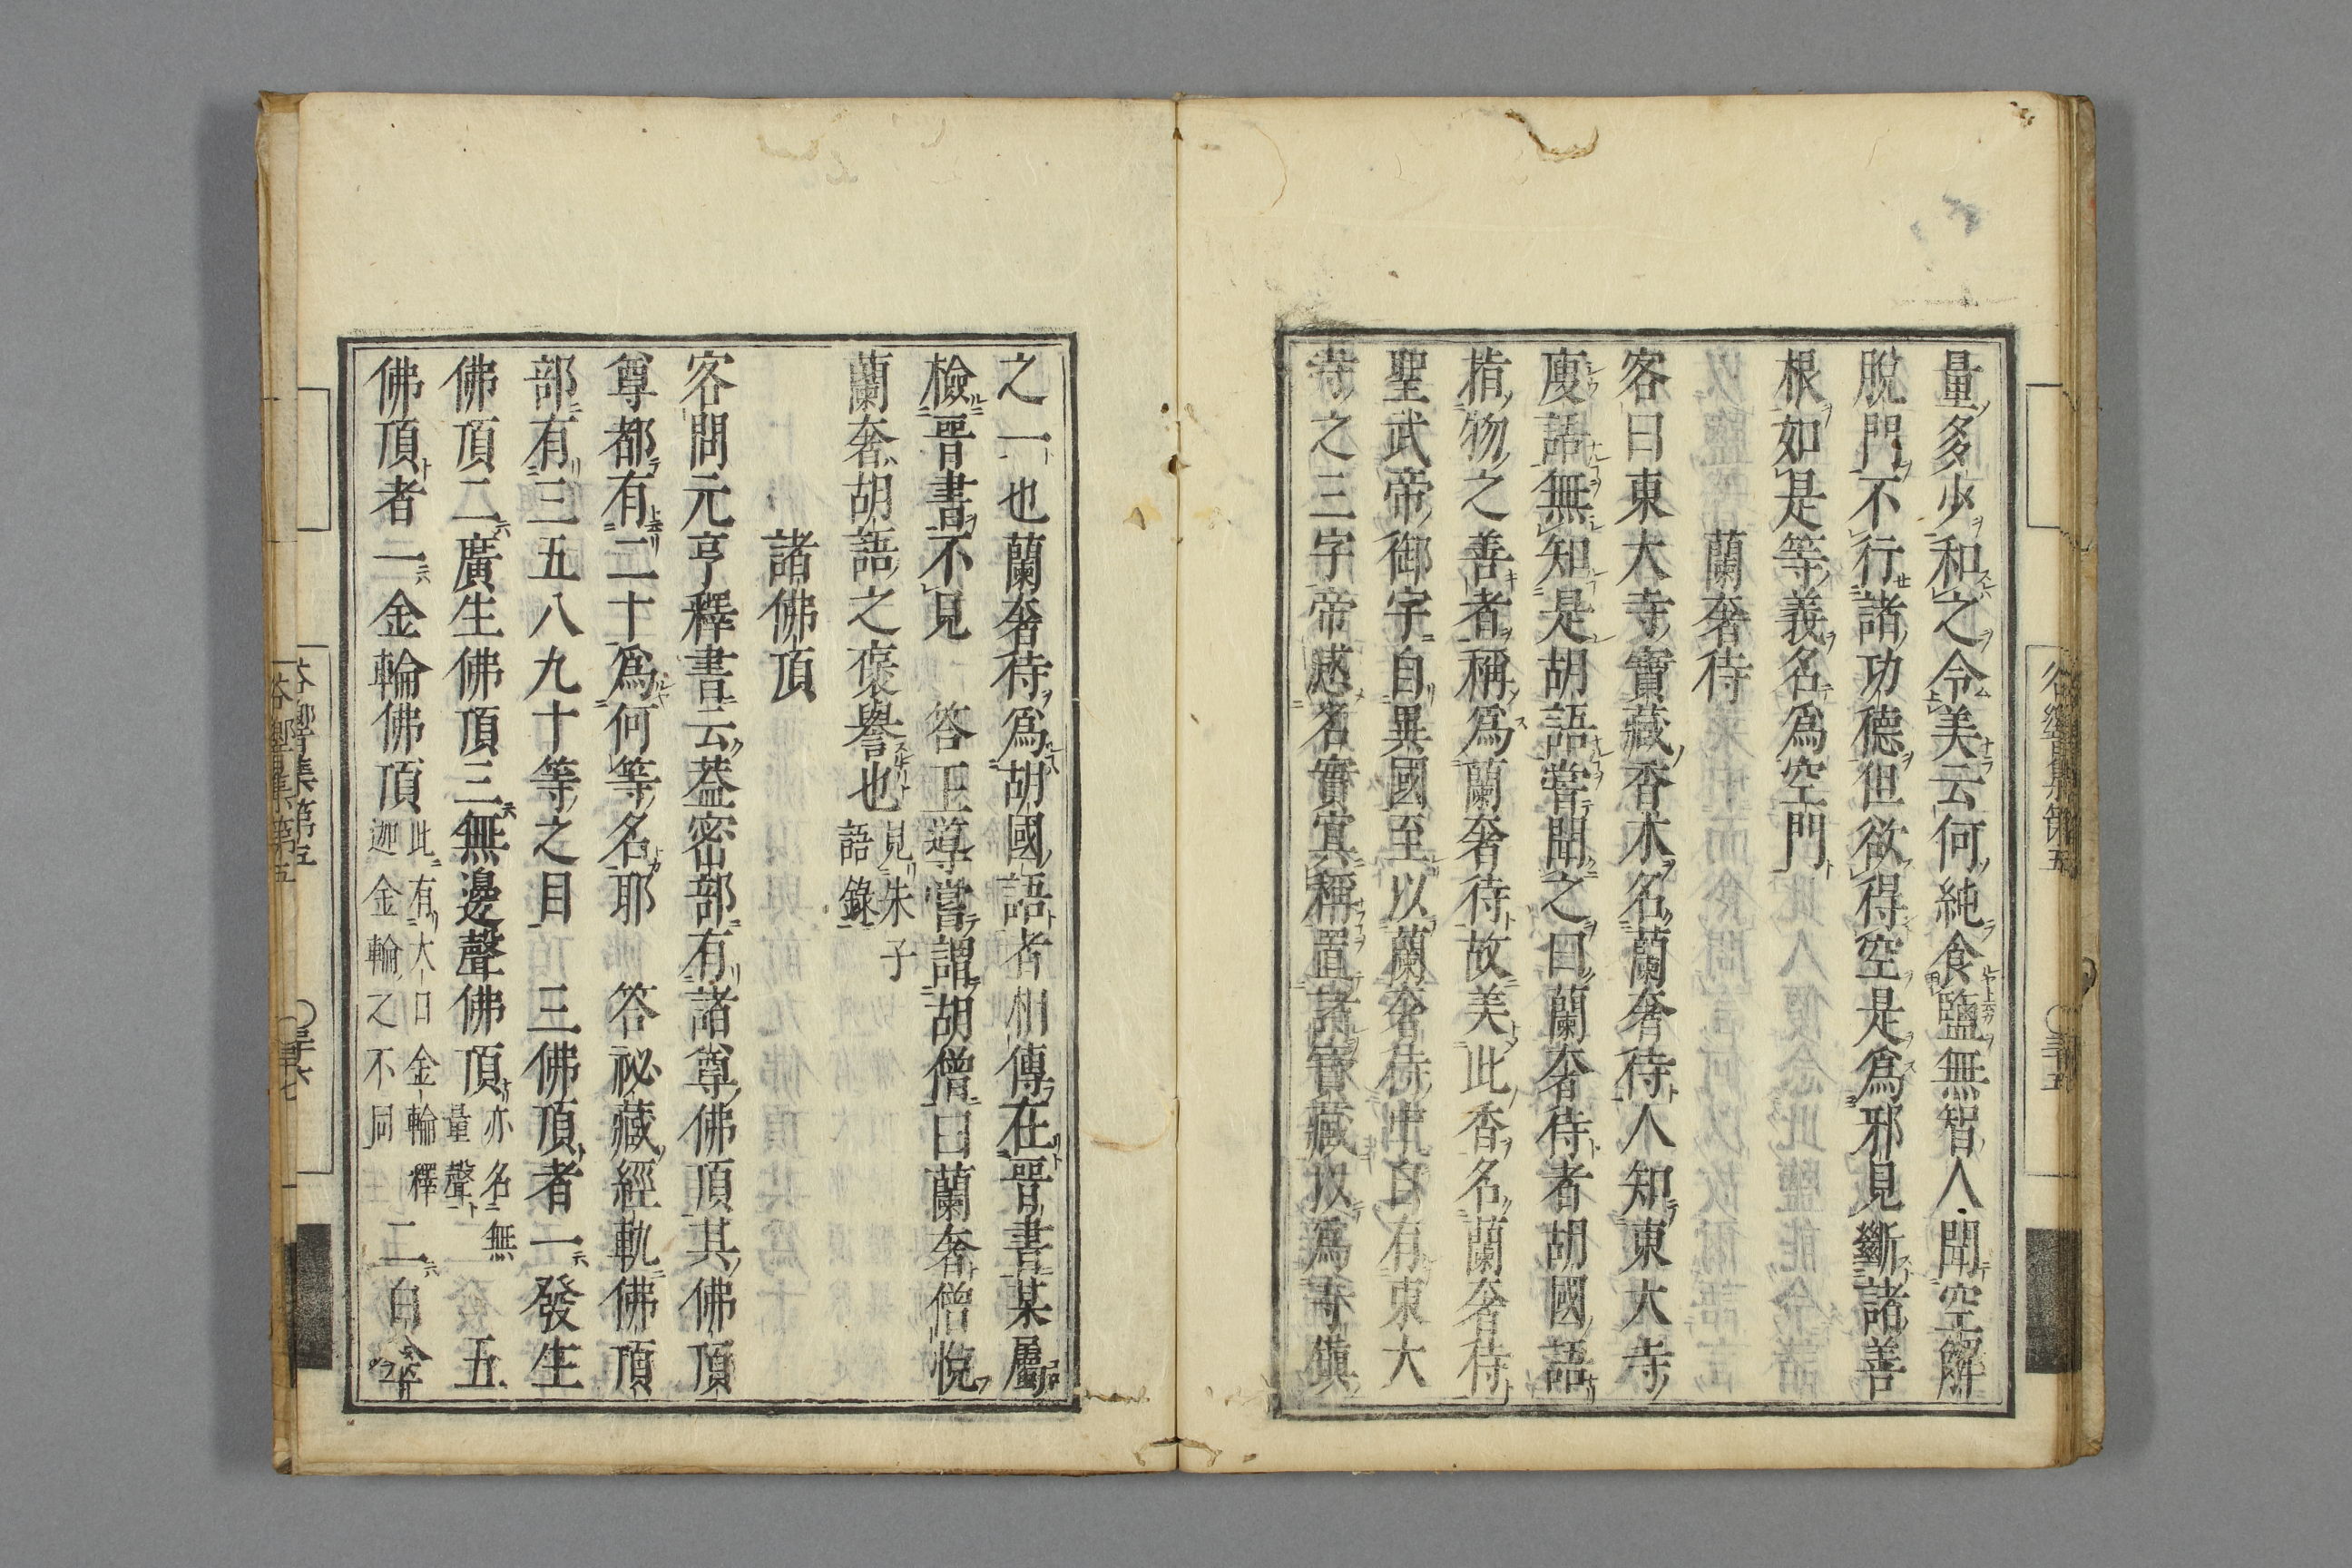 量多少和之令美云何純食鹽無智人聞空解
脫門不行諸功德但欲得空是爲邪見斷諸善
根如是等義名爲空門
蘭奢待
客曰東大寺寶藏香木名蘭奢待人知東大寺
度語無知是胡語嘗聞之曰蘭奢待者胡國語
指物之善者稱爲蘭奢待故美此香名蘭奢待
聖武帝御宇自異國至以蘭奢待中自有東大
寺之三字帝感名實宜稱置諸寶藏以爲寺鎭
之一也蘭奢待爲胡國語者相傳在晉書某屬
檢晉書不見 答王導嘗謂胡僧曰蘭奢僧悅
蘭奢胡語之褒譽也見朱子語錄
諸佛頂
客問元亨釋書云葢密部有諸尊佛頂其佛頂
尊都有二十爲何等名耶 答祕藏經軌佛頂
部有三五八九十等之目 三佛頂者一發生
佛頂二廣生佛頂三無邊聲佛頂亦名無量聲 五
佛頂者一金輪佛頂此有大日金輪釋迦金輪之不同 二白傘
谷響集第五